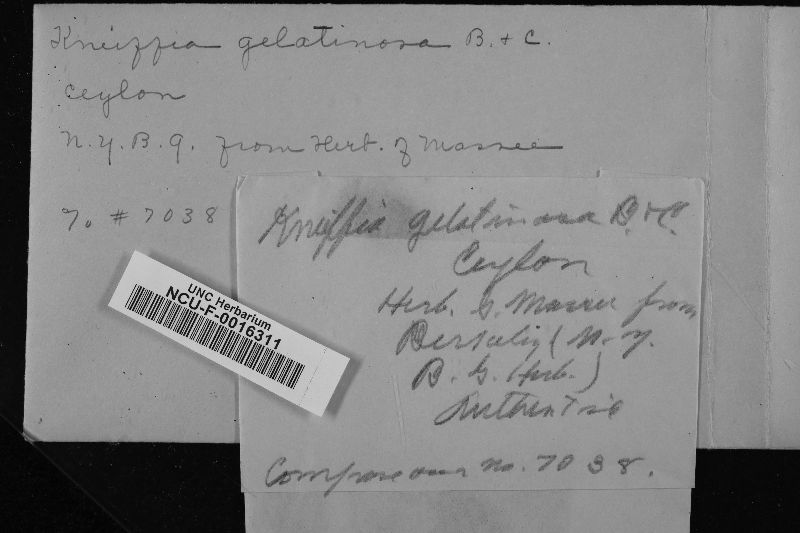 Kneiffia gelatinosa B. & C.
Ceylon
N.Y.B.G. from Herb. of Massee
# 7038
Kneiffia gelatinosa B. & C.
Ceylon
Herb. G. Massee from
(N.Y.
B. G. Herb.)
Authentic
Compare our no. 7038.
UNC Herbarium
NCU-F-0016311